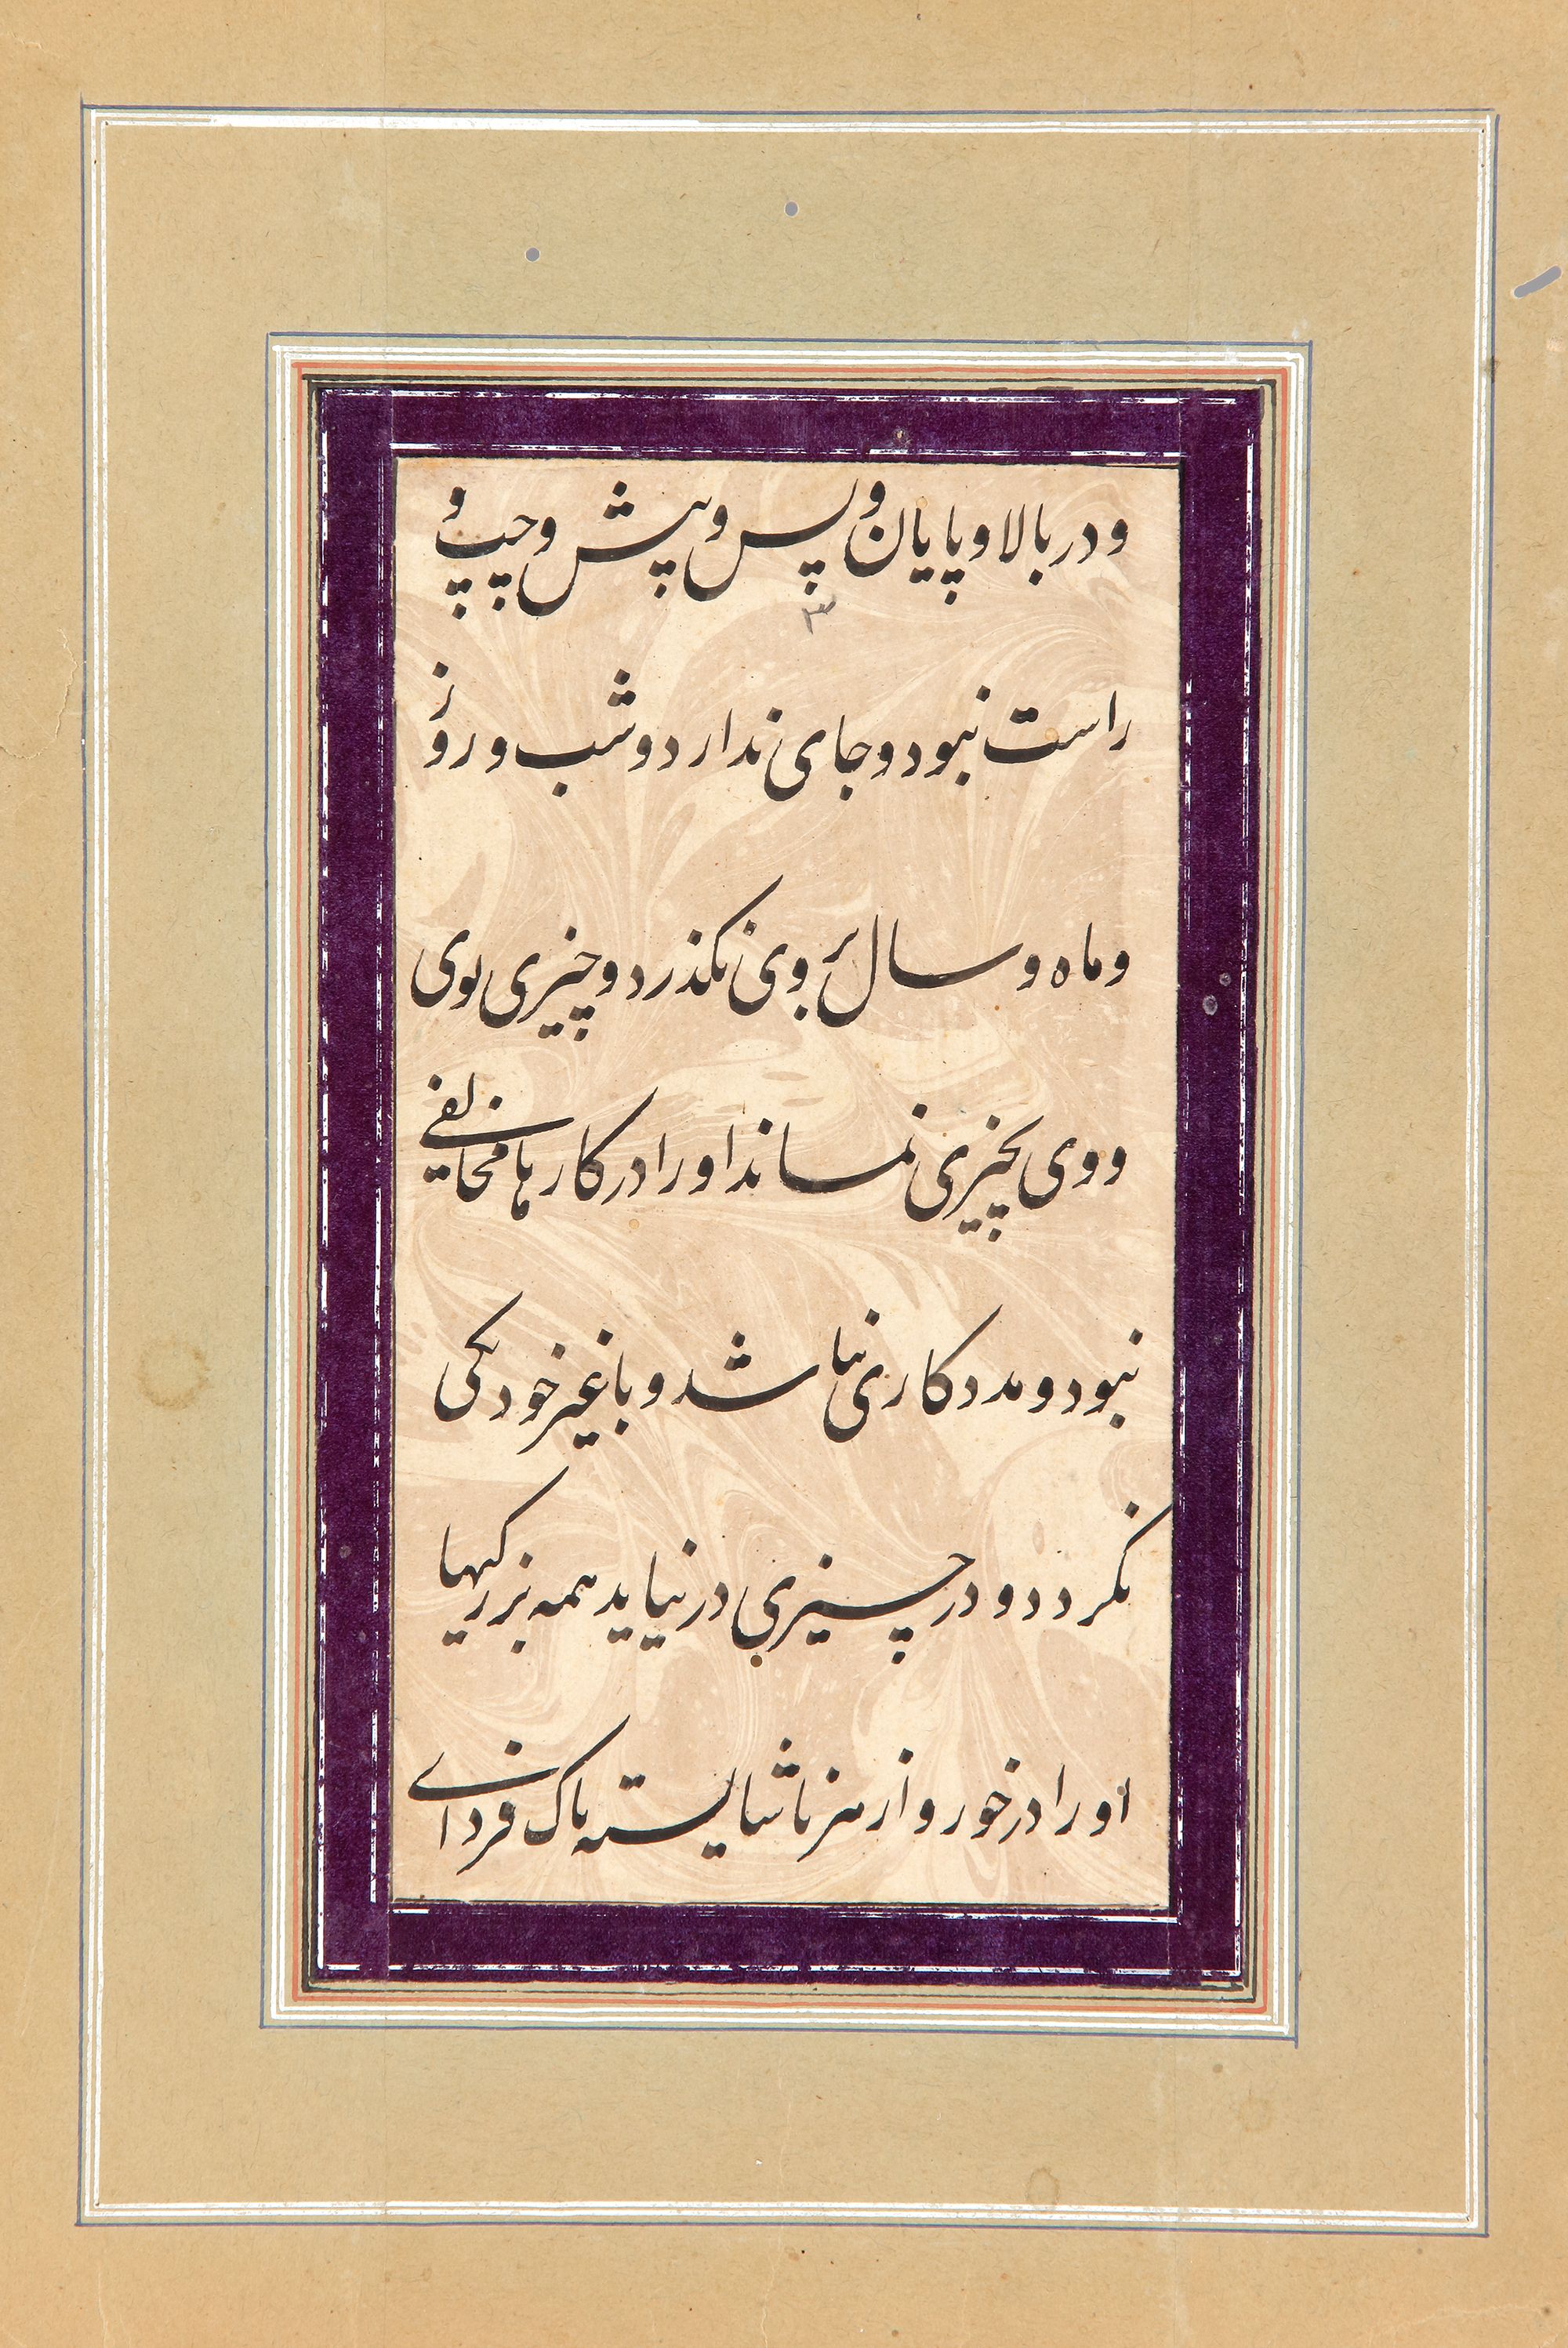 و در بالا و پایان و پس و پیش و چپ و
۳
راست نبود و جای ندارد و شب و روز
و ماه و سال بر وی نکذرد و چیزی بوی
و وی بچیزی نماند او را در کارها مخالفی
نبود و مددکاری نباشد و با غیر خود یکی
نکردد و در چیزی در نیاید همه بزرکیها
او را در خور و از هر ناشایسته پاک فردای